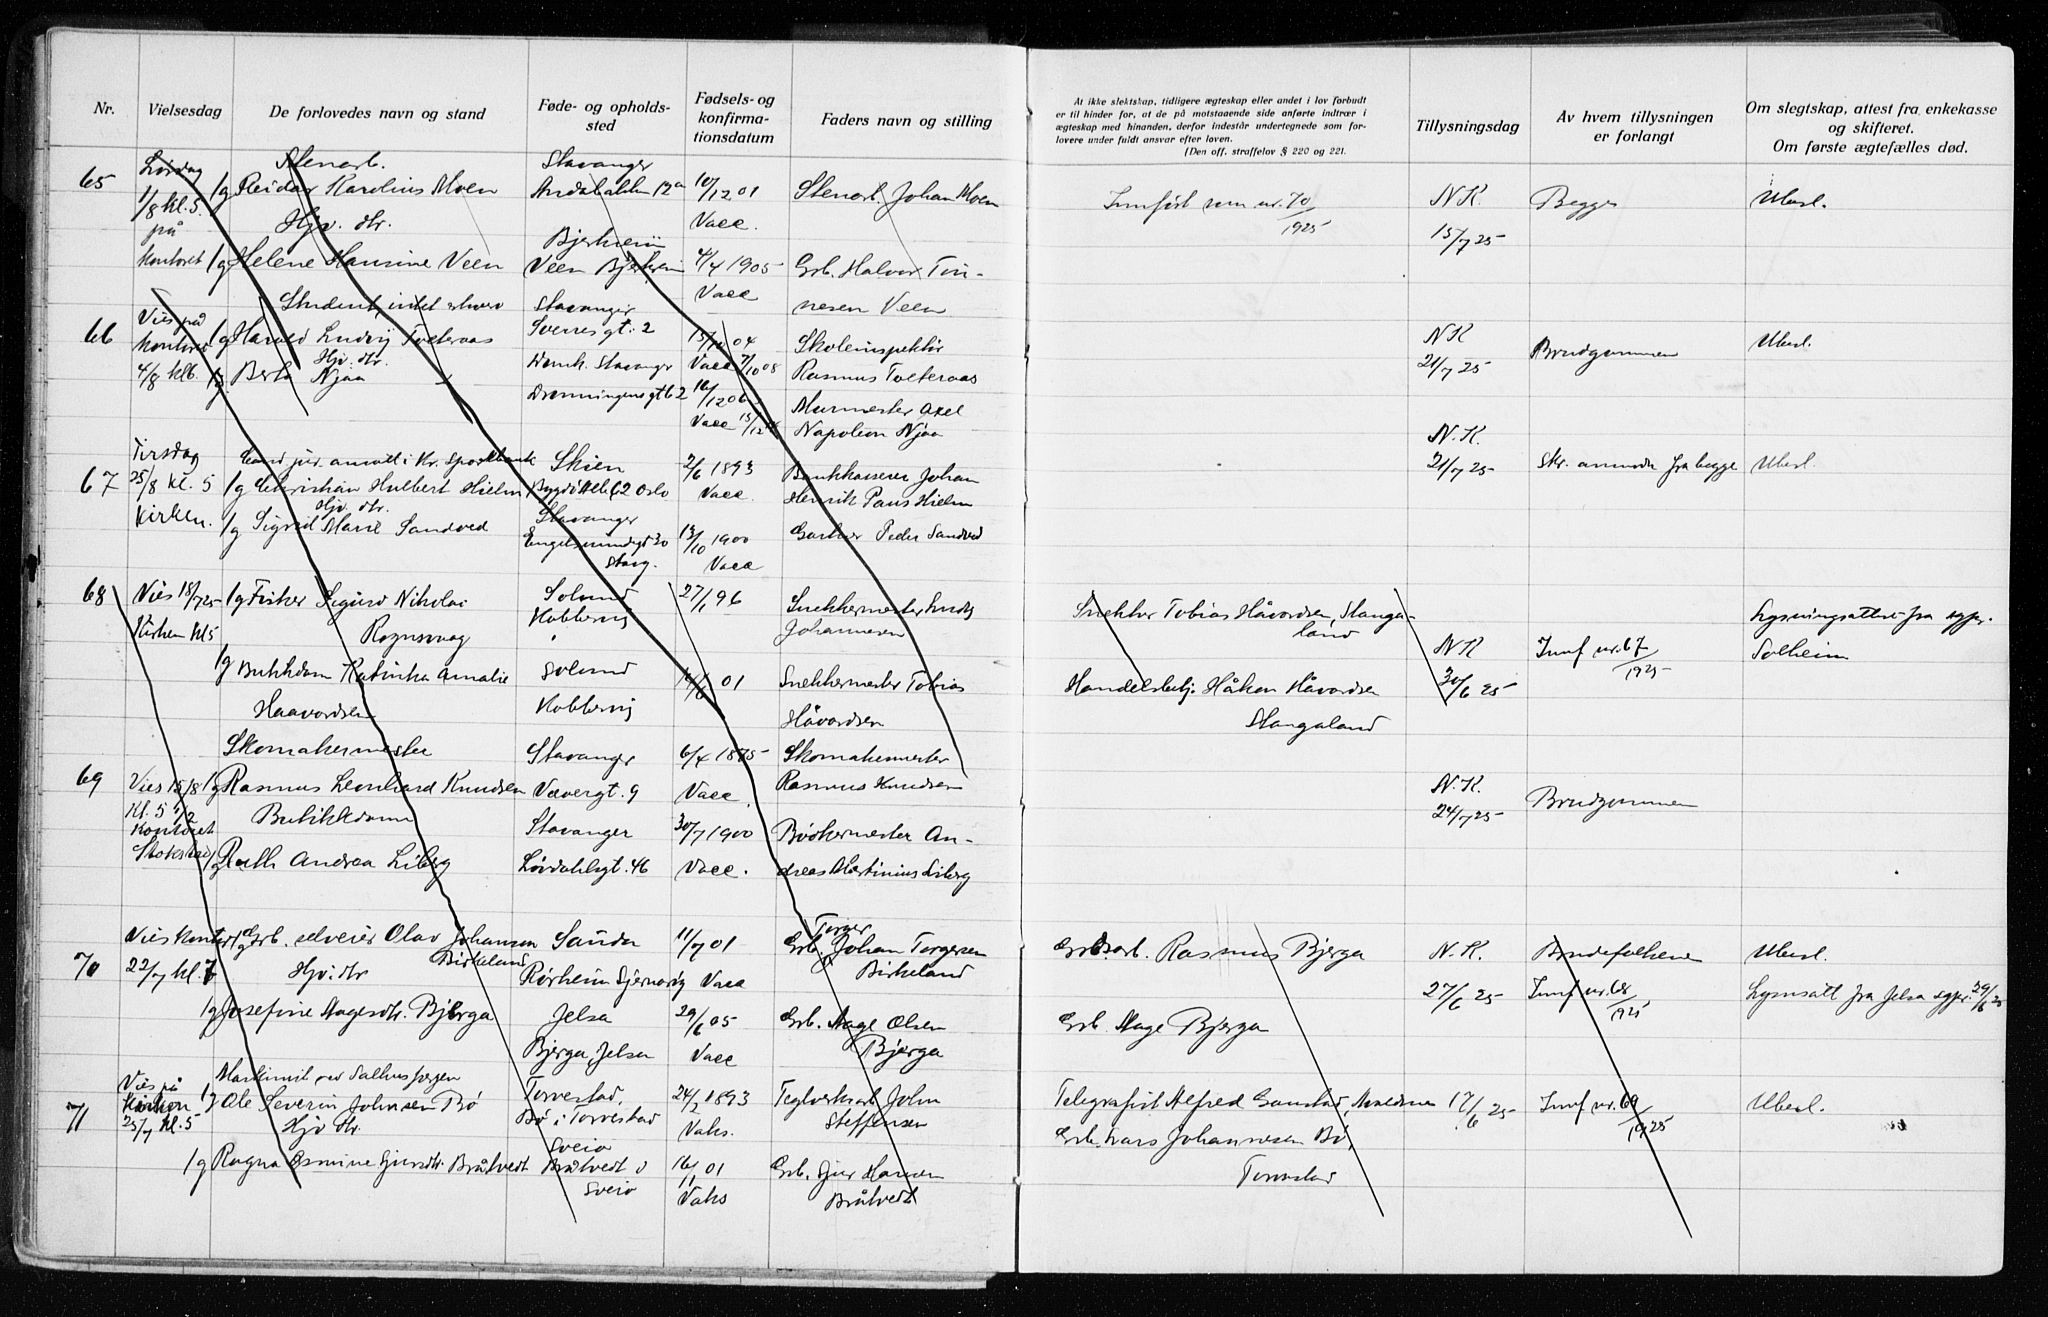 Nr.
Vielsesdag
De forlovedes navn og stand
Føde- og opholds-
sted
Fødsels- og
konfirma-
tionsdatum
Faders navn og stilling
At ikke slektskap, tidligere ægteskap eller andet i lov forbudt
er til hinder for, at de på motstaaende side anførte indtrær i
ægteskap med hinanden, derfor indestår undertegnede som for-
lovere under fuldt ansvar efter loven.
(Den off. straffelov § 220 og 221.
Tillysningsdag
Av hvem tillysningen
er forlangt
Om slegtskap, attest fra enkekasse
og skifteret.
Om første ægtefælles død.
65
Lørdag
1/8 kl. 5.
på
kontoret
Stenarb.
1/g Reidar Karelius Moen
Hjv. dtr.
1/g Helene Hansine Veen
Stavanger
12a
Bjerkreim
Veen Bjerkreim
10/12 01
Vacc.
4/4 1905
Vacc
Stenarb. Johan Moen
Grb. Halvor Tøn-
nesen Veen
Innført som nr. 70/1925
N.K.
15/7 25
Begge
Ubesl.
66
Vies på
kontoret
4/8 kl 6.
Student, intet erhverv
1/g Harald Ludvig Tveteraas
Hjv. dtr.
Berta Njaa
Stavanger
Sverresgt. 2
Domk. Stavanger
Dronningensgt 62
15/10 04
Vacc 7/10 08
16/12 06
Vacc
Skoleinspektør
Rasmus Tveteraas
Murmester Axel
Napoleon Njaa
N.K
21/7 25
Brudgommen
Ubesl.
67
Tirsdag
25/8 kl. 5
Kirken.
Cand. jur. ansatt i Kr. Sparebank
1/g Christian Hulbert Hielm
Hjv. dtr.
1/g Sigrid Marie Sandved
Skien
Bygdø Allé 62 Oslo
Stavanger
Engelsmindegt 30
Stavg.
2/6 1893
Vacc.
13/10 1900
Vacc
Bankkasserer Johan
Henrik Paus Hielm
Gartner Peder Sandved
N.K.
21/7 25
Skr. anmoda fra begge
Ubesl.
68
Vies 18/7 25
Kirken Kl 5
1/g Fisker Sigurd Nikolai
Rognsvaag
1/g Butikkdam Katinka Amalie
Haavardsen
Solund
Kobbervig
Solund
Kobbervig
27/1 96
/6 01
Snekkermester
Johannesen
Snekkermester Tobias
Håvardsen
Snekker Tobias Håvardsen, Stanga-
land
Handelsbetj. Håkon Håvardsen
Stangaland
N.K
30/6 25
Innf nr. 67/1925
Lysningsattest fra sgpr.
Solheim
69
Vies 15/8
Kl. 5 1/2
Kontoret
Stokstad
Skomakermester
1/g Rasmus Leonhard Knudsen
Butikkdame
1/g Ruth Andrea Liberg
Stavanger
Vævergt. 9
Stavanger
Løvdahlsgt. 46
6/4 1875
Vacc.
30/7 1900
Vacc.
Skomakermester
Rasmus Knudsen
Bødkermester An-
dreas Martinius Liberg
N.K.
24/7 25
Brudgommen
70
Vies kontor
22/7 kl. 7
1/g Grb. selveier Olav Johansen
Birkeland
Hjv. dtr
1/g Josefine Aagesdtr. Bjerga
Sauda
Rørheim Sjernarøy
Jelsa
Bjerga, Jelsa
11/7 01
Vacc
29/6 05
Vacc
Torger
Grb. Johan Torgersen
Birkeland
Grb. Aage Olsen
Bjerga
Grdsarb. Rasmus Bjerga
Grb. Aage Bjerga
N.K.
27/6 25
Brudefolkene
Innf nr. 68/1925
Ubesl.
Lysnsatt fra Jelsa sgpr. 29/6 25
71
Vies på
Kirken
25/7 kl. 5
Maskinist ved Salhus fergen
1/g Ole Severin Johnsen Bø
Hjv dtr.
1/g Ragna Osmine Gjersdtr. Bråtvedt
Torvestad.
Bø i Torvestad
Sveio
Bråtvedt i
Sveio
24/2 1893
Vaks.
16/1 01
Vaks
Teglverksarb John
Steffensen
Grb. Gjer Hansen
Bråtvedt
Telegrafist Alfred Gaustad,
Grb. Lars Johannesen Bø,
Torvestad
17/6 25
Innf nr. 69/1925
Ubesl.